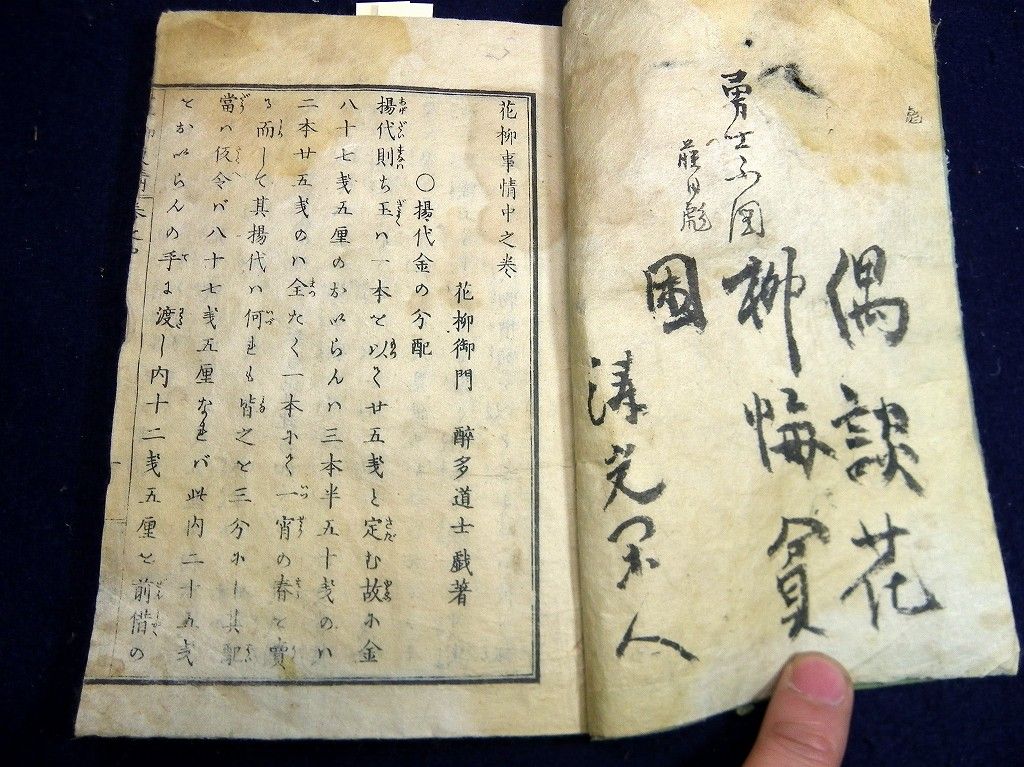 偶談花
柳悔貧
困
人
花柳事情中之巻
花柳御門 醉多道士戯著
〇揚代金の分配
揚代則ち玉ハ一本を以て廿五銭と定む故に金
八十七銭五厘のかいらんハ三本半五十銭のハ
二本廿五銭のハ全たく一本にて一宵の春を賣
る而して其揚代ハ何れも皆之を三分にし其配
當ハ仮令バ八十七銭五厘なれバ此内二十五銭
とかいらんの手に渡し内十二銭五厘を前借の